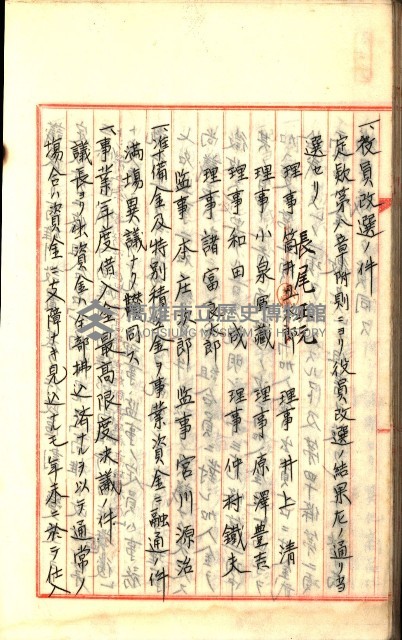 一、役員改選ノ件
定款第八章附則ニヨリ役員改選ノ結果左ノ通リ当
選セリ
長尾正元
理事 筒井丑 理事 井上清
理事 小泉寅藏 理事 原澤豊吉
理事 和田 成 理事 仲村鐵夫
理事 諸富良太郎
監事 本庄 郎 監事 宮川源治
一、準備金及特別積 金ヲ事業資金ニ融通ノ件
満場異議ナク賛同ス
一、事業年度借入金最高限度決議ノ件
議長ヨリ出資金ハ全部拂込済ナルヲ以テ通常ノ
場合ハ資金ニ支障ナキ見込ナルモ年末ニ於テ仕入
高雄市立歷史博物館
KAOHSIUNG MUSEUM OF HISTORY